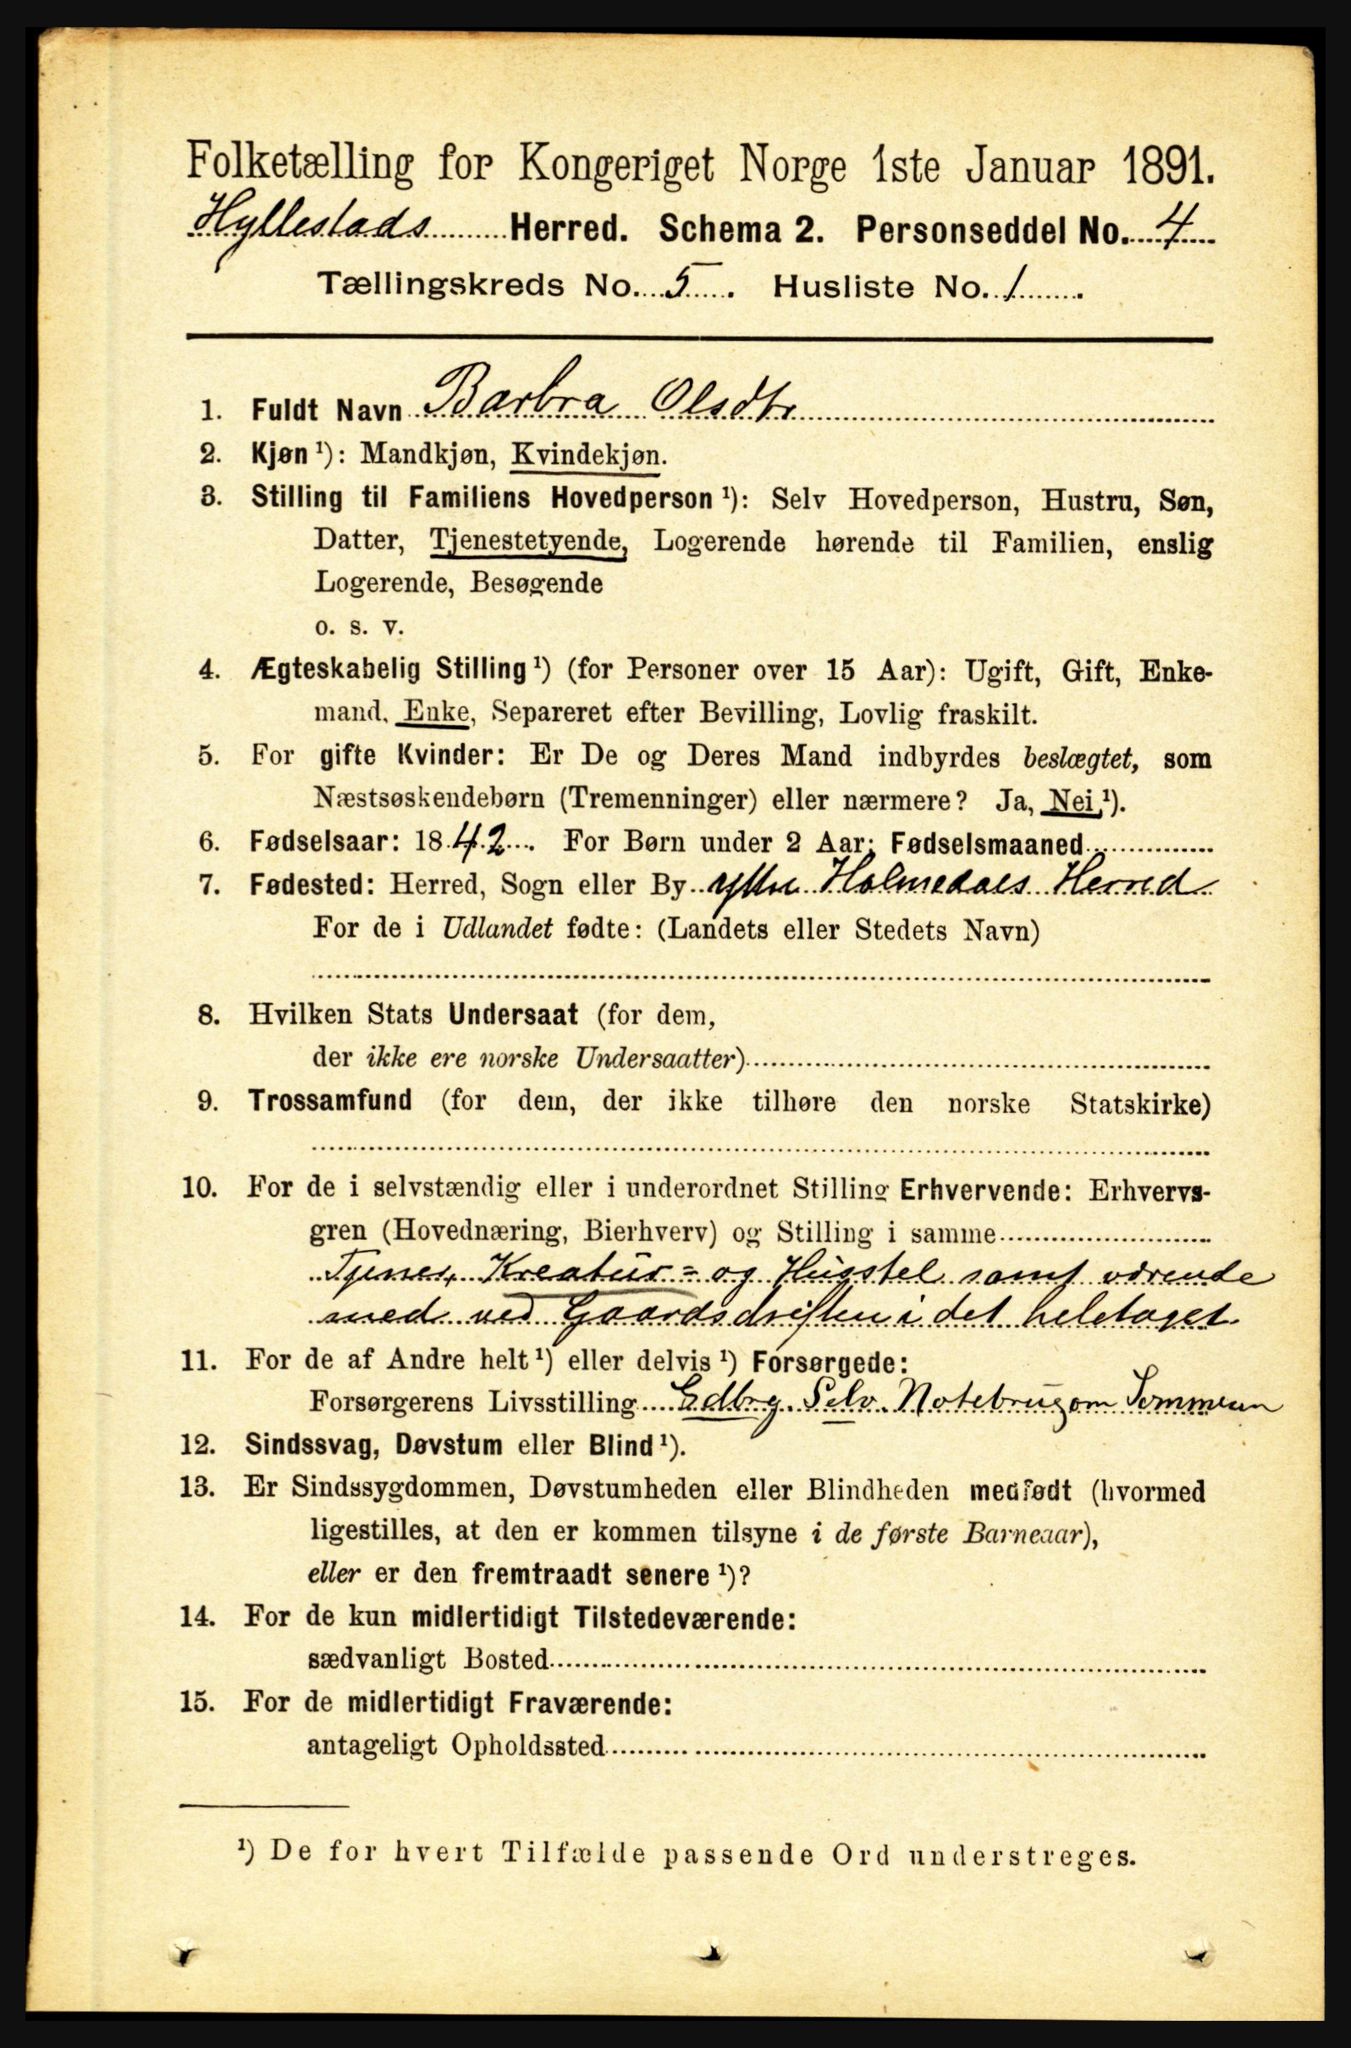 Folketælling for Kongeriget Norge 1ste Januar 1891.
Hyllestads Herred. Schema 2. Personseddel No. 4
Tællingskreds No. 5. Husliste No. 1.
1. Fuldt Navn Barbra Olsdtr
2. Kjøn ¹): Mandkjøn, Kvindekjøn.
3. Stilling til Familiens Hovedperson ¹): Selv Hovedperson, Hustru, Søn,
Datter, Tjenestetyende, Logerende hørende til Familien, enslig
Logerende, Besøgende
o. s. v.
4. Ægteskabelig Stilling ¹) (for Personer over 15 Aar): Ugift, Gift, Enke-
mand, Enke, Separeret efter Bevilling, Lovlig fraskilt.
5. For gifte Kvinder: Er De og Deres Mand indbyrdes beslægtet, som
Næstsøskendebørn (Tremenninger) eller nærmere? Ja, Nei ¹).
6. Fødselsaar: 1842. For Børn under 2 Aar: Fødselsmaaned
7. Fødested: Herred, Sogn eller By Yttre Holmedals Herred
For de i Udlandet fødte: (Landets eller Stedets Navn)
8. Hvilken Stats Undersaat (for dem,
der ikke ere norske Undersaatter)
9. Trossamfund (for dem, der ikke tilhøre den norske Statskirke)
10. For de i selvstændig eller i underordnet Stilling Erhvervende: Erhvervs-
gren (Hovednæring, Bierhverv) og Stilling i samme
Tjener, Kreatur- og Husstel samt værende
med ved Gaardsdriften i det heletaget
11. For de af Andre helt ¹) eller delvis ¹) Forsørgede:
Forsørgerens Livsstilling Gdbrg. Selv. Notebrug om Sommeren
12. Sindssvag, Døvstum eller Blind ¹).
13. Er Sindssygdommen, Døvstumheden eller Blindheden medfødt (hvormed
ligestilles, at den er kommen tilsyne i de første Barneaar),
eller er den fremtraadt senere ¹)?
14. For de kun midlertidigt Tilstedeværende:
sædvanligt Bosted
15. For de midlertidigt Fraværende:
antageligt Opholdssted
¹) De for hvert Tilfælde passende Ord understreges.